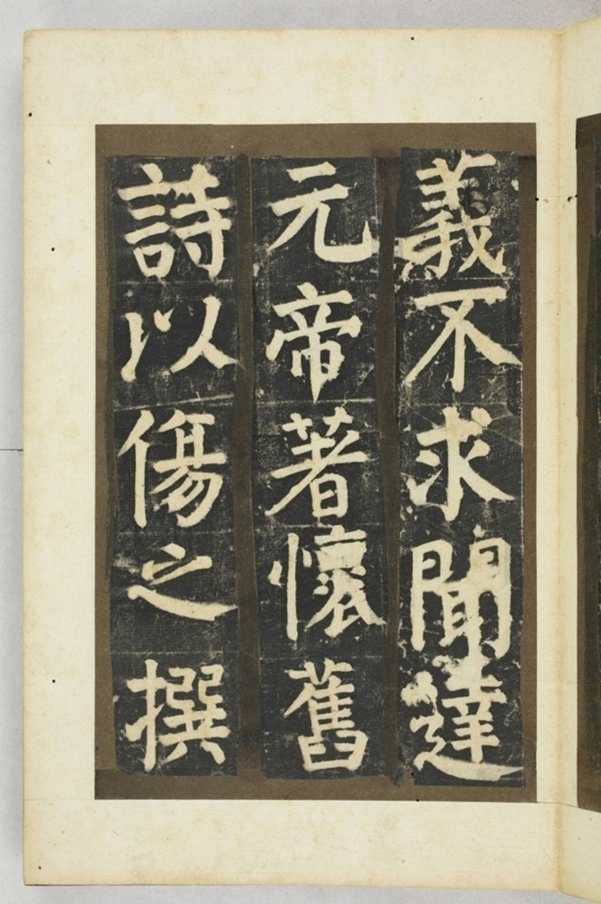 義不求聞達
元帝著懷舊
詩以傷之撰